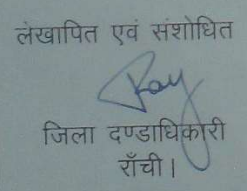 लेखापित एवं संशोधित
जिला दण्डाधिकारी
राँची।